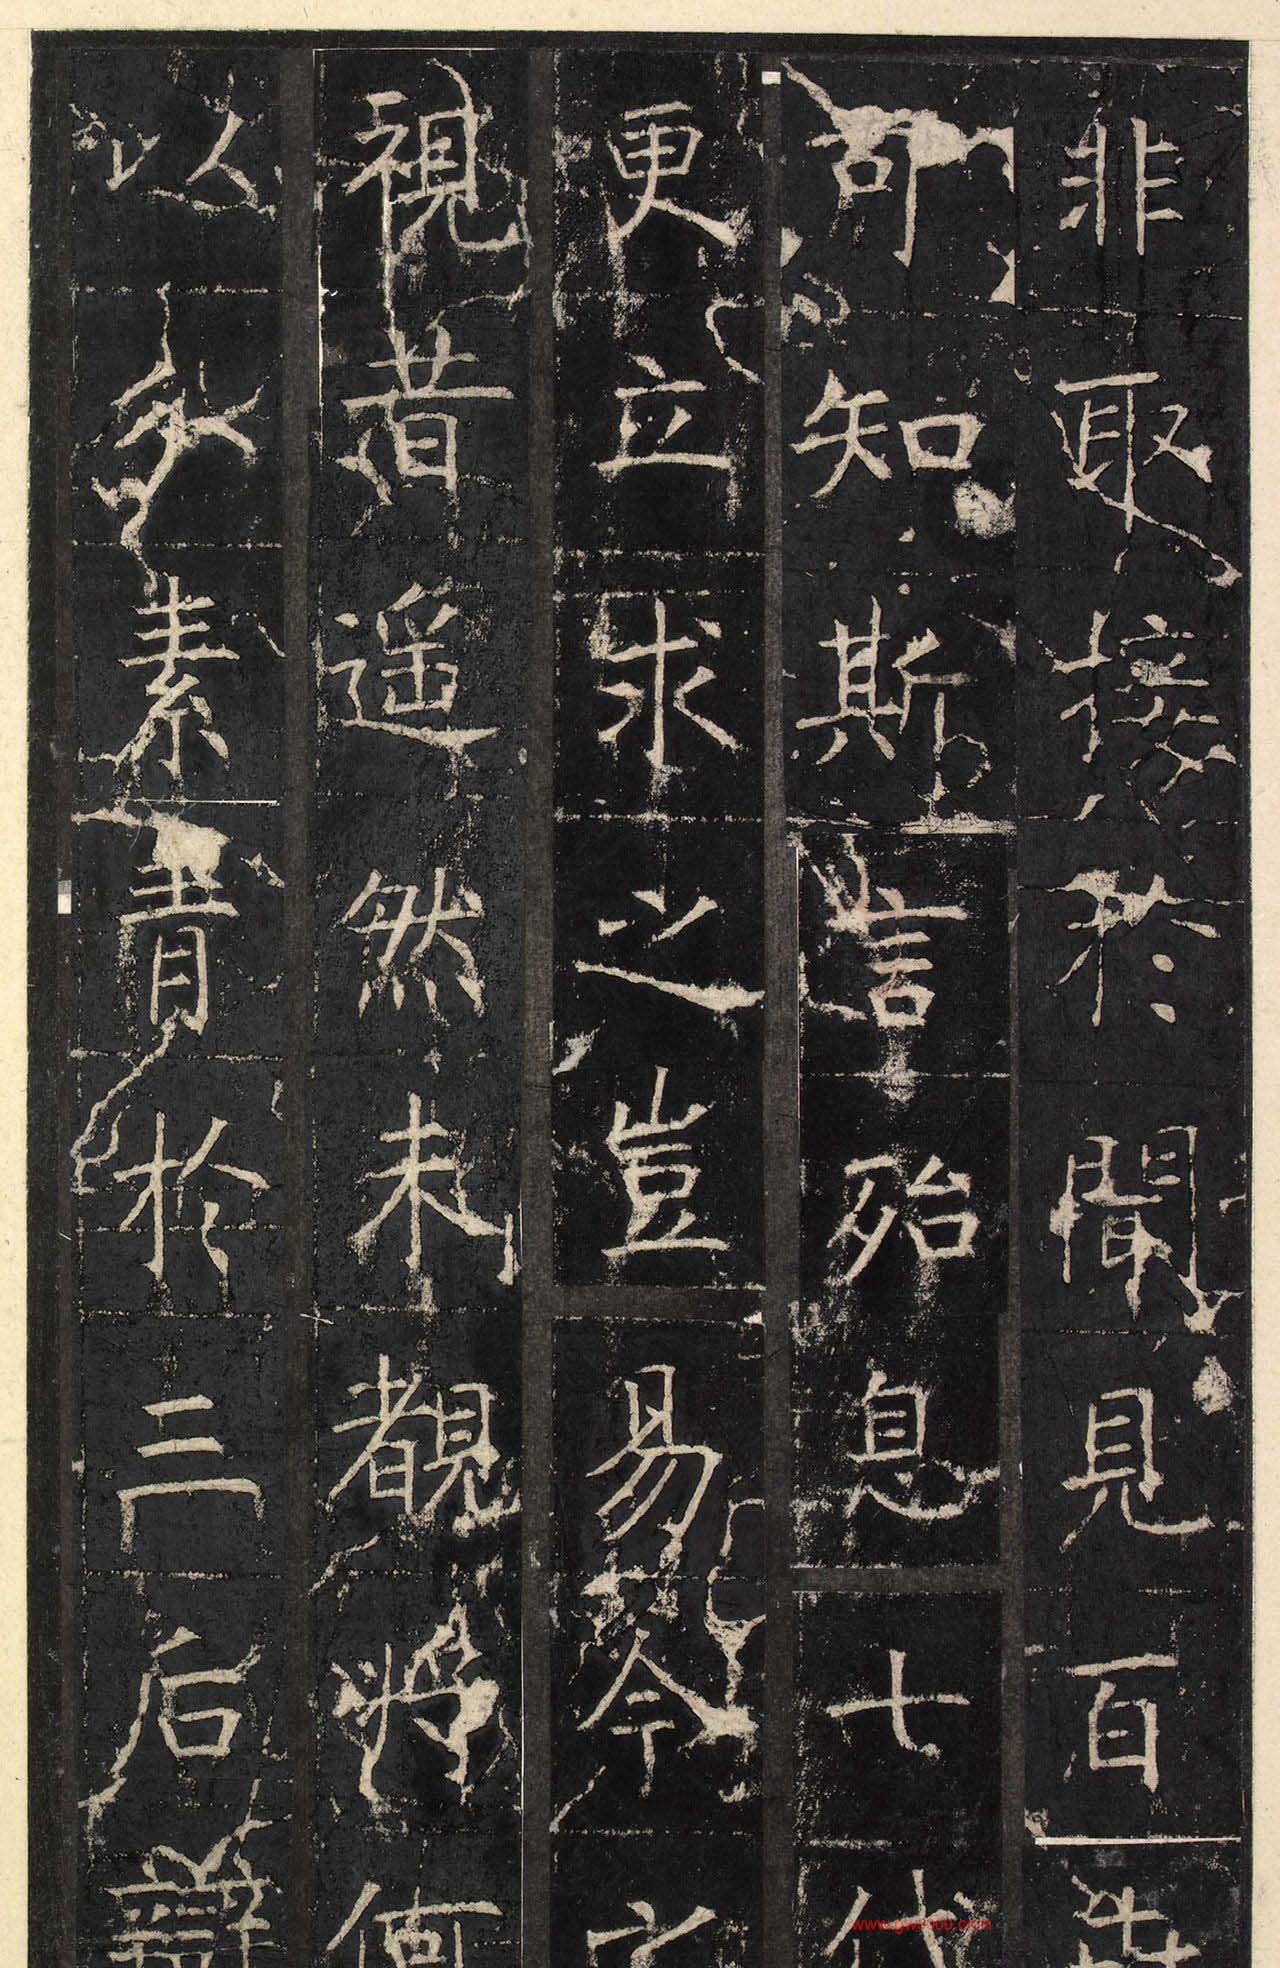 非取接於聞見百世
可知斯言殆息七代
更立求之豈易今之
視昔遥然未覩將何
以光素青於三后辯
www.gw1000.com